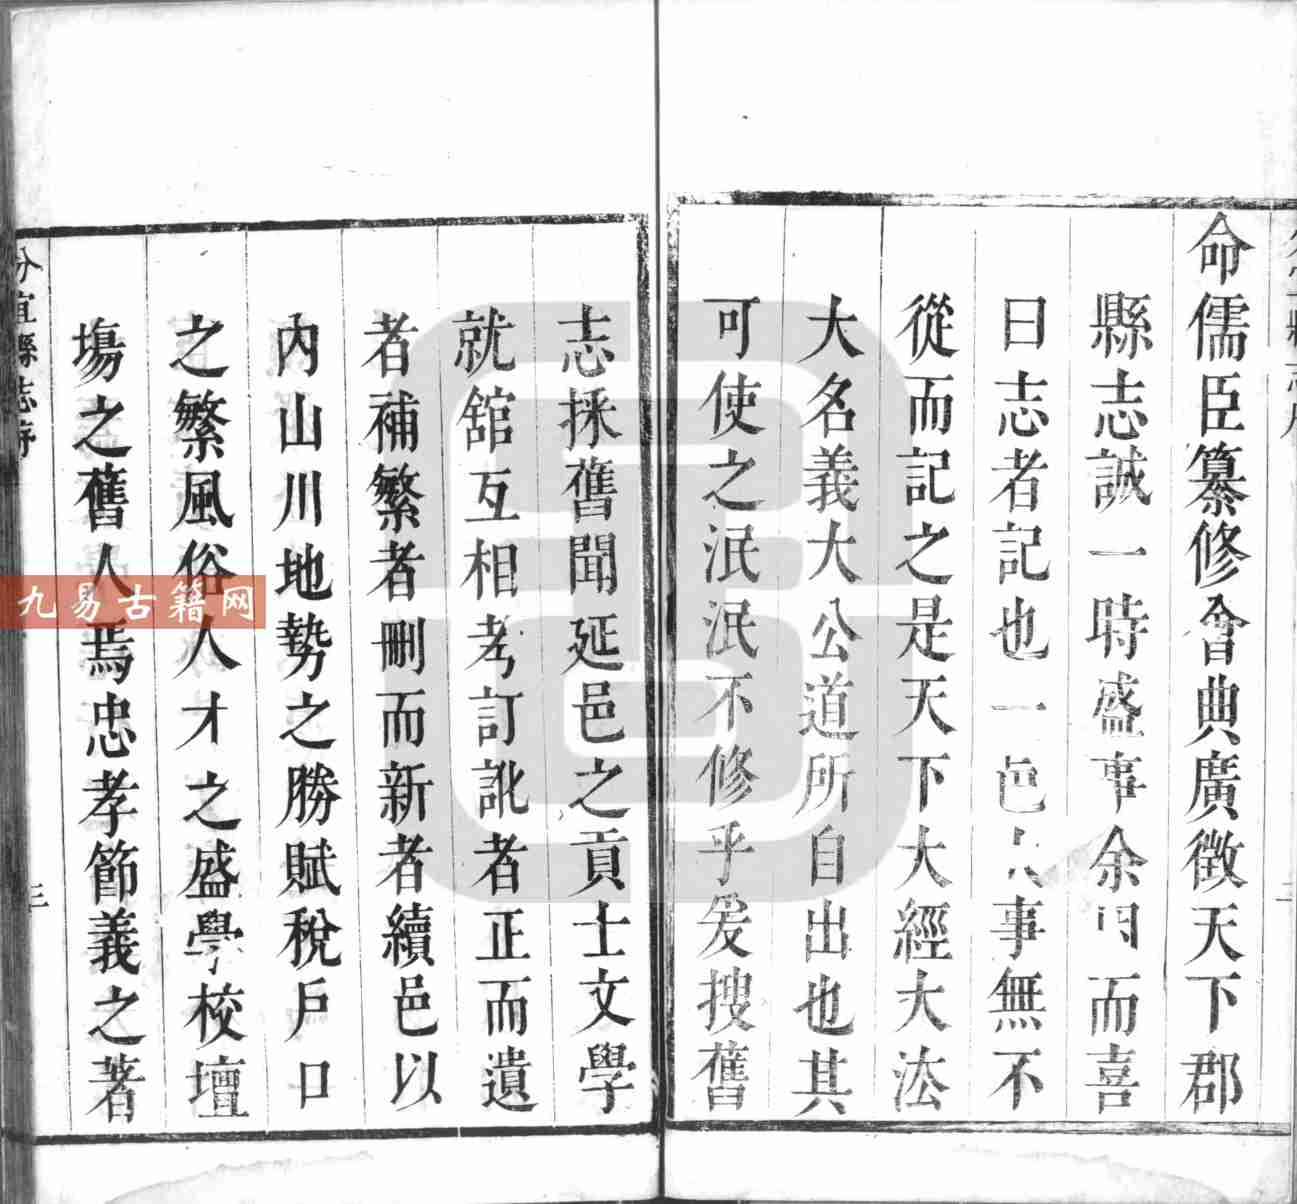 命儒臣纂修會典廣徵天下郡
縣志誠一時盛事余聞而喜
曰志者記也一邑之事無不
從而記之是天下大經大法
大名義大公道所自出也其
可使之泯泯不修乎爰搜舊
志採舊聞延邑之貢士文學
就舘互相考訂訛者正而遺
者補繁者刪而新者續邑以
內山川地勢之勝賦稅戶口
之繁風俗人才之盛學校壇
塲之舊人焉忠孝節義之著
分宜縣志序
三
九易古籍网